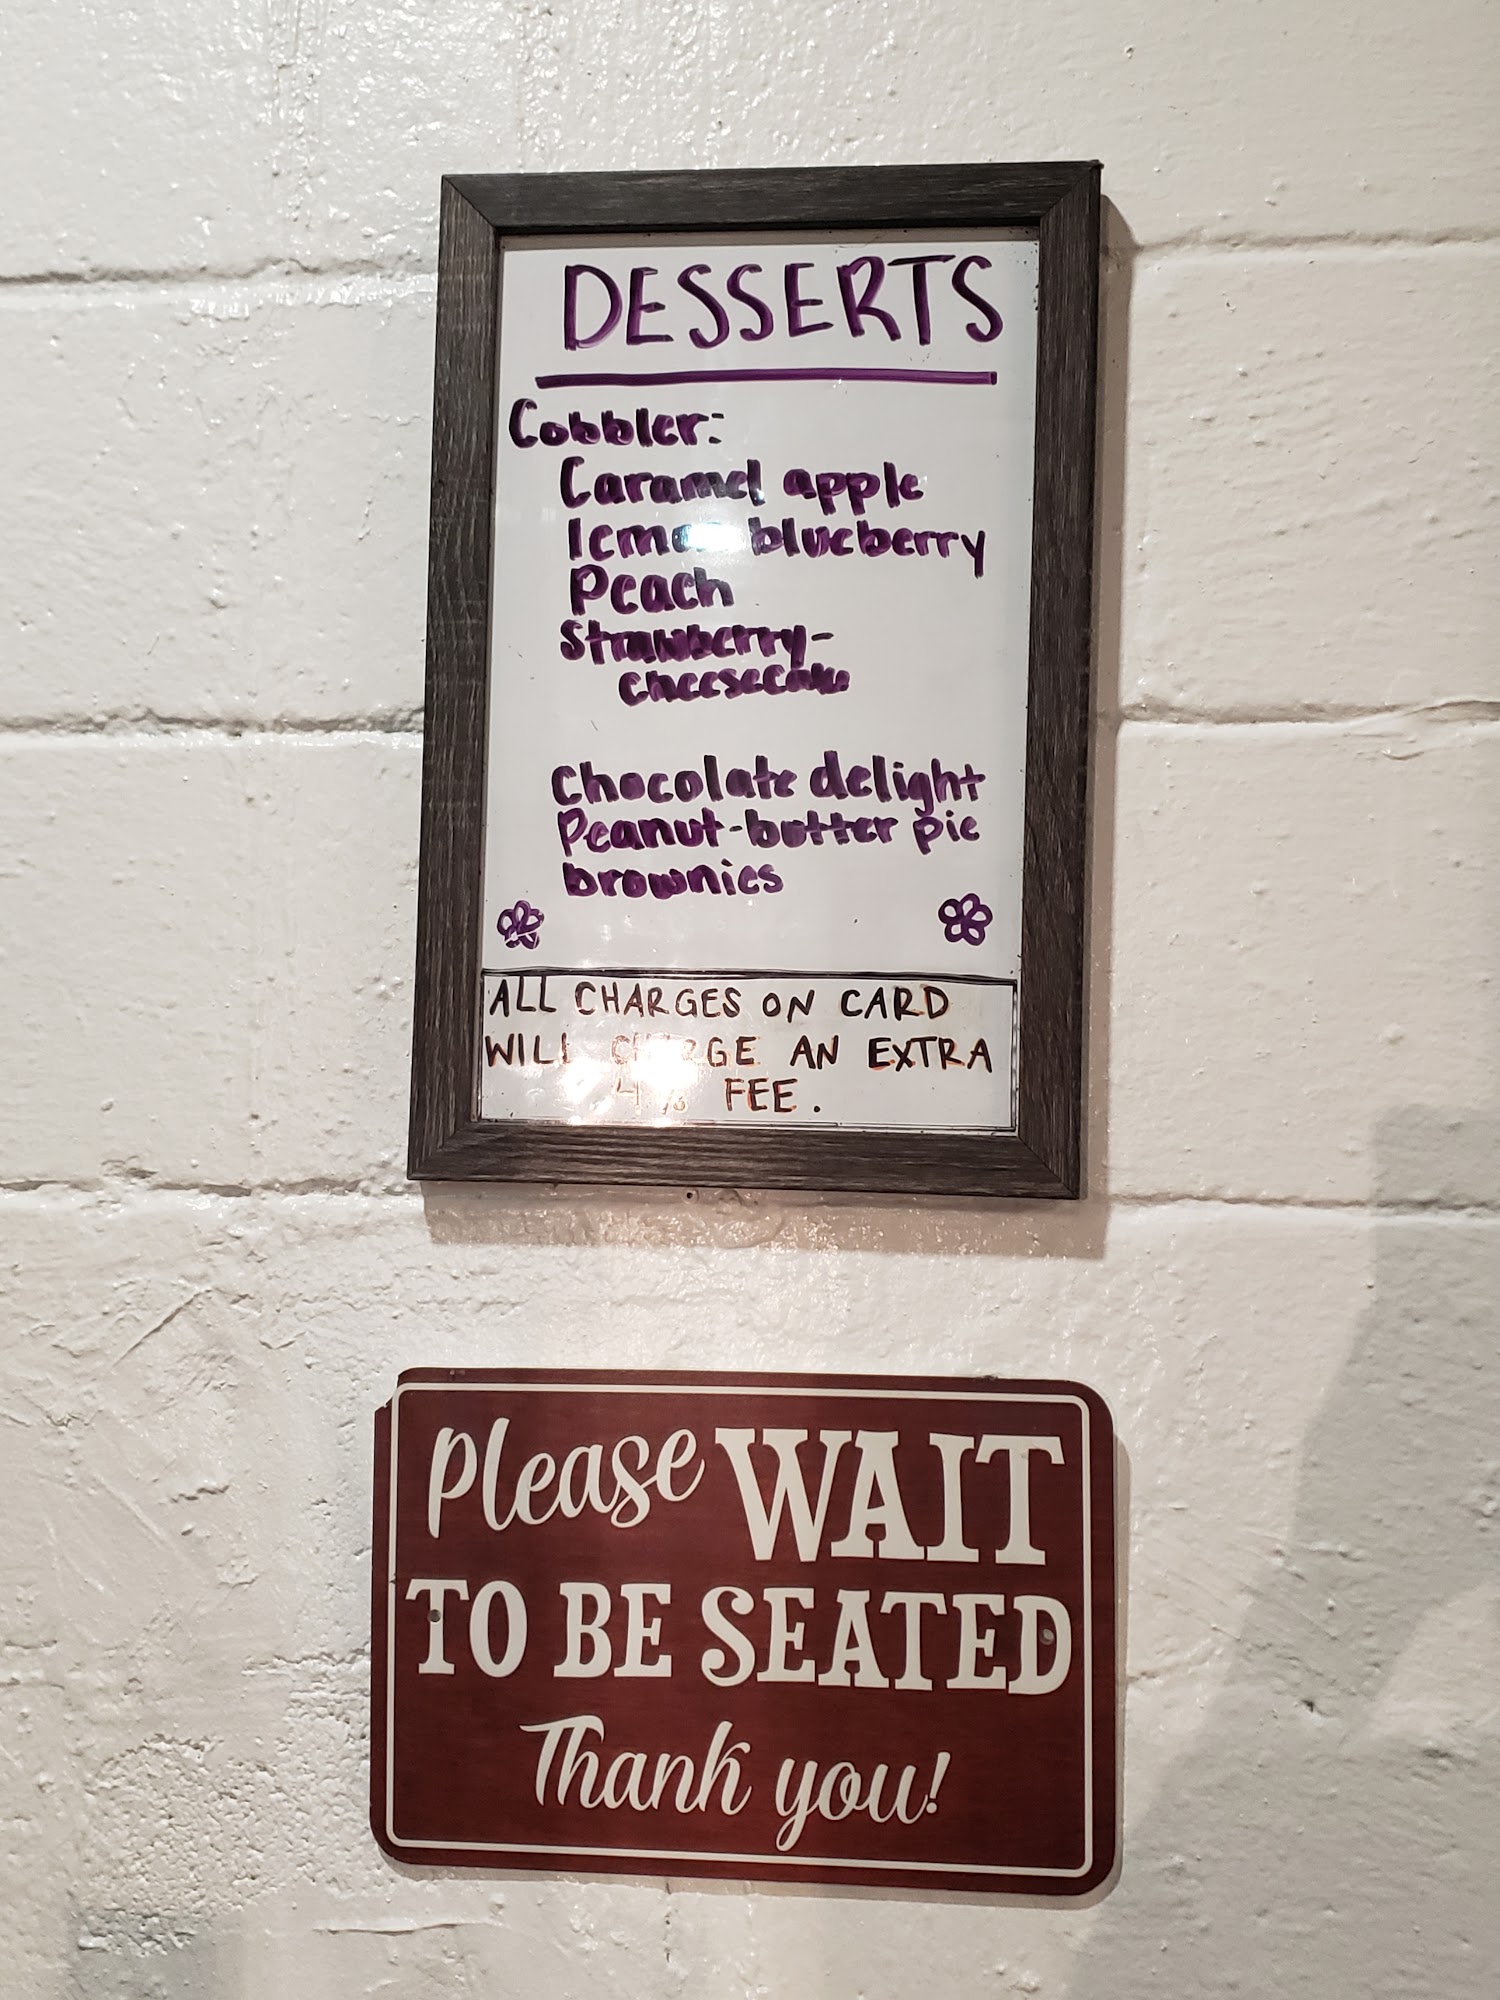 DESSERTS
Cobbler:
Caramel apple
lemon blueberry
Peach
Strawberry-
cheesecake
Chocolate delight
Peanut-butter pie
brownies
ALL CHARGES ON CARD
WILL CHARGE AN EXTRA
4% FEE.
Please WAIT
TO BE SEATED
Thank you!